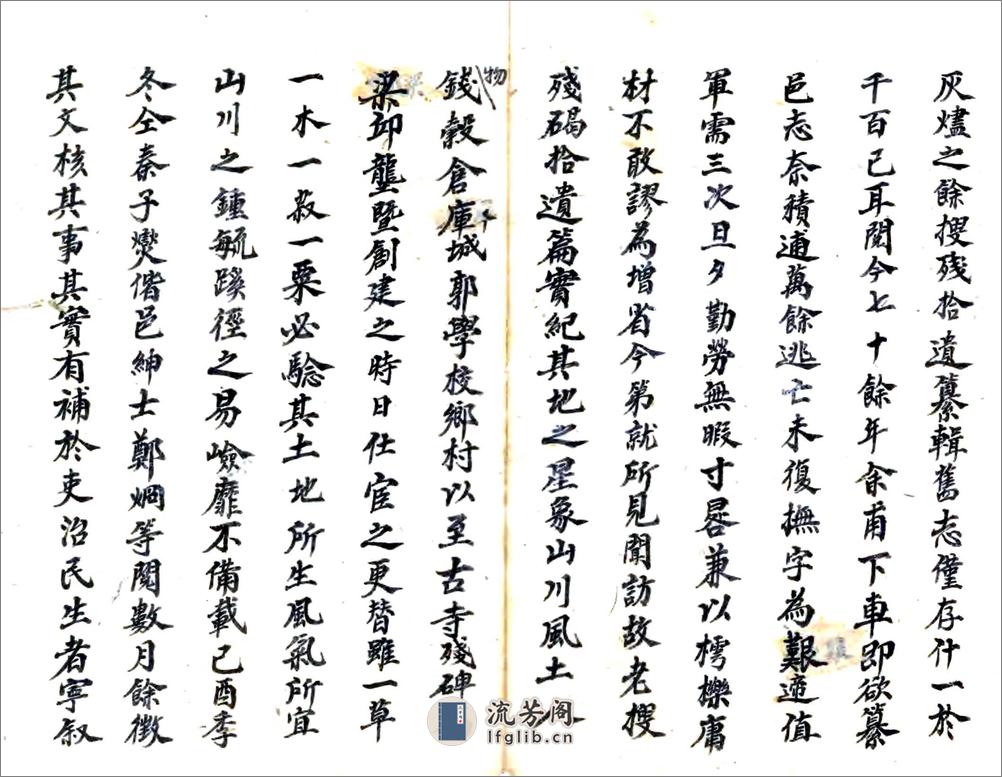 灰燼之餘搜殘拾遺纂輯舊志僅存什一於
千百已耳閱今七十餘年余甫下車即欲纂
邑志奈積逋萬餘逃亡未復撫字為艱適值
軍需三次旦夕勤勞無暇寸晷兼以樗櫟庸
材不敢謬為增省今第就所見聞訪故老搜
殘碣拾遺篇實紀其地之星象山川風土
物
錢穀倉庫城郭學校鄉村以至古寺殘碑
梁邱壟暨創建之時日仕宦之更替雖一草
一木一穀一粟必驗其土地所生風氣所宜
山川之鍾毓蹊徑之易嶮靡不備載己酉季
冬仝秦子爕偕邑紳士鄭烱等閱數月餘徵
其文核其事其實有補於吏治民生者寧叙
流芳阁
lfglib.cn